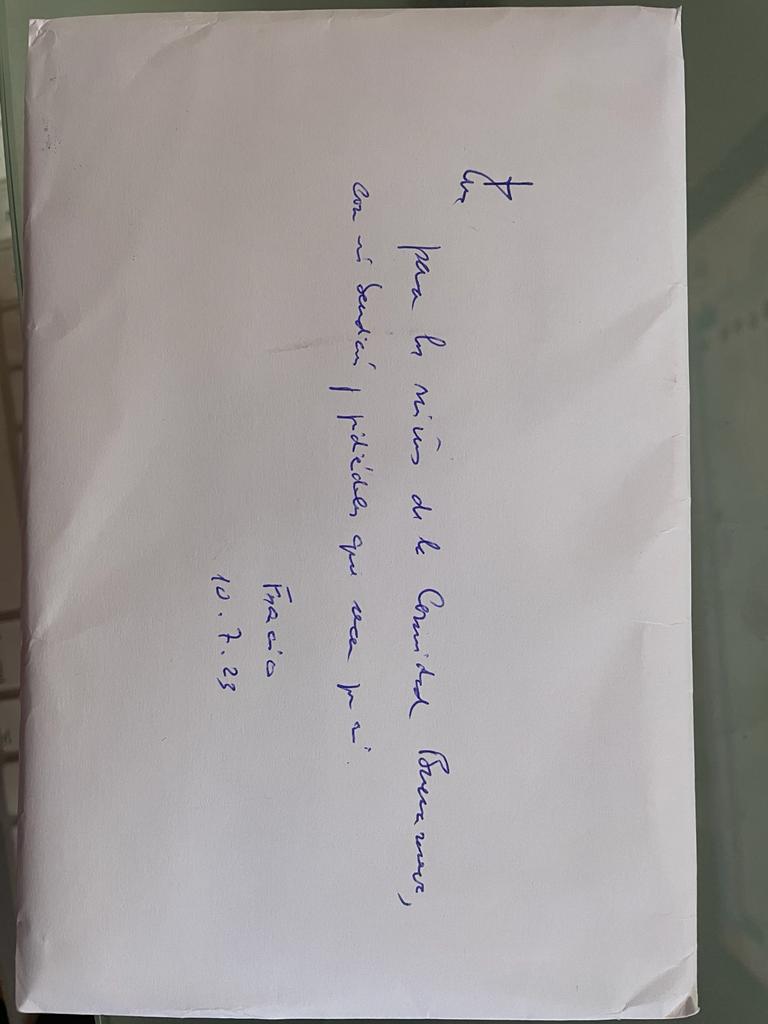 para los niños de la Comunidad Buenanueva,
con mi bendición, y pidiéndoles que recen por mí.
Francisco
10.7.23